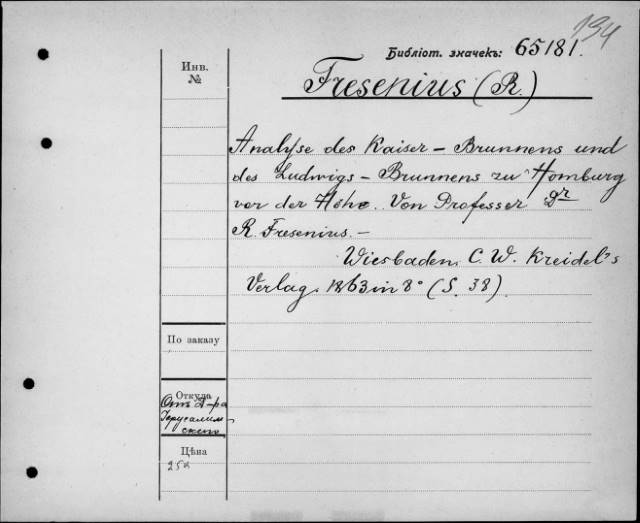 194
Библіот. значекъ: 65181.
Инв.
№
Fresenius (R.)
Analyse des Kaiser – Brunnens und
des Ludwigs – Brunnens zu Homburg
vor der Höhe. Von Professer Dr
R. Fresenius. –
Wiesbaden, C. W. Kreidel's
Verlag. 1863 in 8° (S. 38).
По заказу
Откуда
Отъ Д-ра
Іерусалим-
скаго
Цѣна
25к